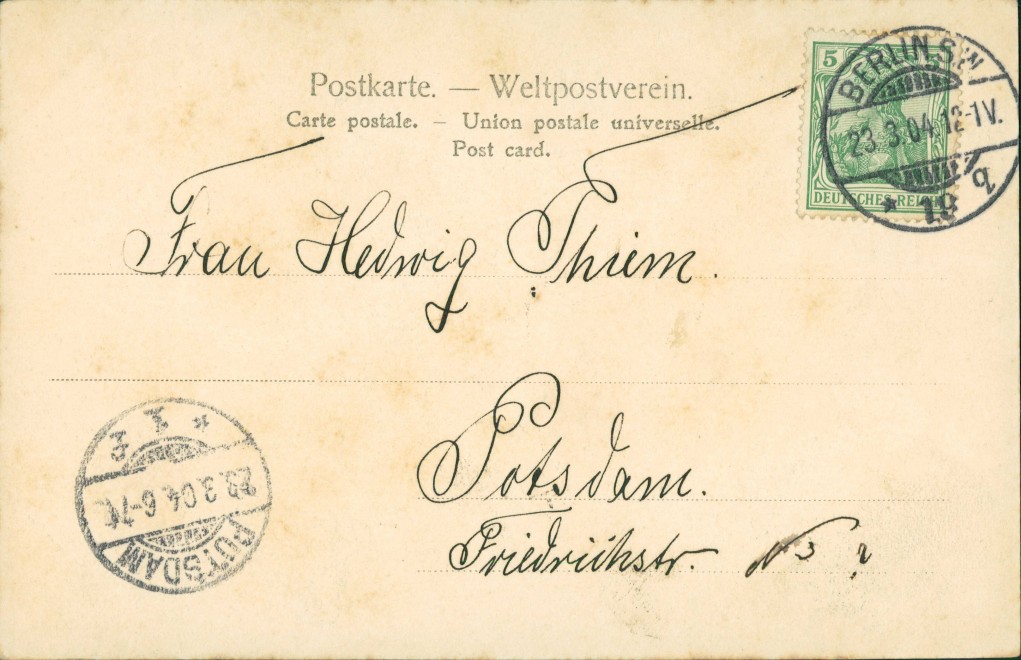 Postkarte. — Weltpostverein.
Carte postale. – Union postale universelle.
Post card.
5
DEUTSCHES REICH
BERLIN S.W.
23.3.04.12-1V.
* 19 q
Frau Hedwig Thiem.
Potsdam.
Friedrichstr. No 3 ?
POTSDAM
23.3.04.6-7N.
* 1